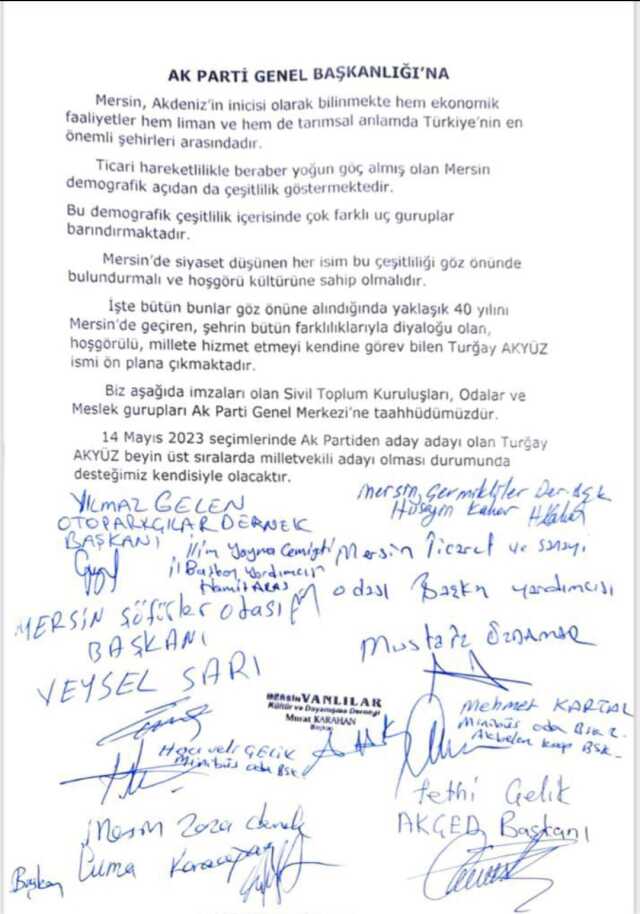 AK PARTİ GENEL BAŞKANLIĞI'NA
Mersin, Akdeniz'in inicisi olarak bilinmekte hem ekonomik
faaliyetler hem liman ve hem de tarımsal anlamda Türkiye'nin en
önemli şehirleri arasındadır.
Ticari hareketlilikle beraber yoğun göç almış olan Mersin
demografik açıdan da çeşitlilik göstermektedir.
Bu demografik çeşitlilik içerisinde çok farklı uç guruplar
barındırmaktadır.
Mersin'de siyaset düşünen her isim bu çeşitliliği göz önünde
bulundurmalı ve hoşgörü kültürüne sahip olmalıdır.
İşte bütün bunlar göz önüne alındığında yaklaşık 40 yılını
Mersin'de geçiren, şehrin bütün farklılıklarıyla diyaloğu olan,
hoşgörülü, millete hizmet etmeyi kendine görev bilen Turğay AKYÜZ
ismi ön plana çıkmaktadır.
Biz aşağıda imzaları olan Sivil Toplum Kuruluşları, Odalar ve
Meslek gurupları Ak Parti Genel Merkezi'ne taahhüdümüzdür.
14 Mayıs 2023 seçimlerinde Ak Partiden aday adayı olan Turğay
AKYÜZ beyin üst sıralarda milletvekili adayı olması durumunda
desteğimiz kendisiyle olacaktır.
YILMAZ GELEN
OTOPARKÇILAR DERNEK
BAŞKANI
Mersin Germikliler Der.
Hüseyin Kahar
İlim Yayma Cemiyeti
İl Başkan Yardımcısı
Hamit ARAS
Mersin Ticaret ve sanayi
odası Başkn yardımcısı
Mustafa ÖZDAMAR
MERSİN ŞÖFÖRLER ODASI
BAŞKANI
VEYSEL SARI
MERSİN VANLILAR
Kültür ve Dayanışma Derneği
Murat KARAHAN
Başkan
Mehmet KARTAL
Minibüs oda Bşk 2.
Akbelen koop BŞK.
Hacı veli ÇELİK
Minibüs oda BŞK
Fethi Çelik
AKGED Başkanı
Mersin Zaza dernek
Başkan Cuma